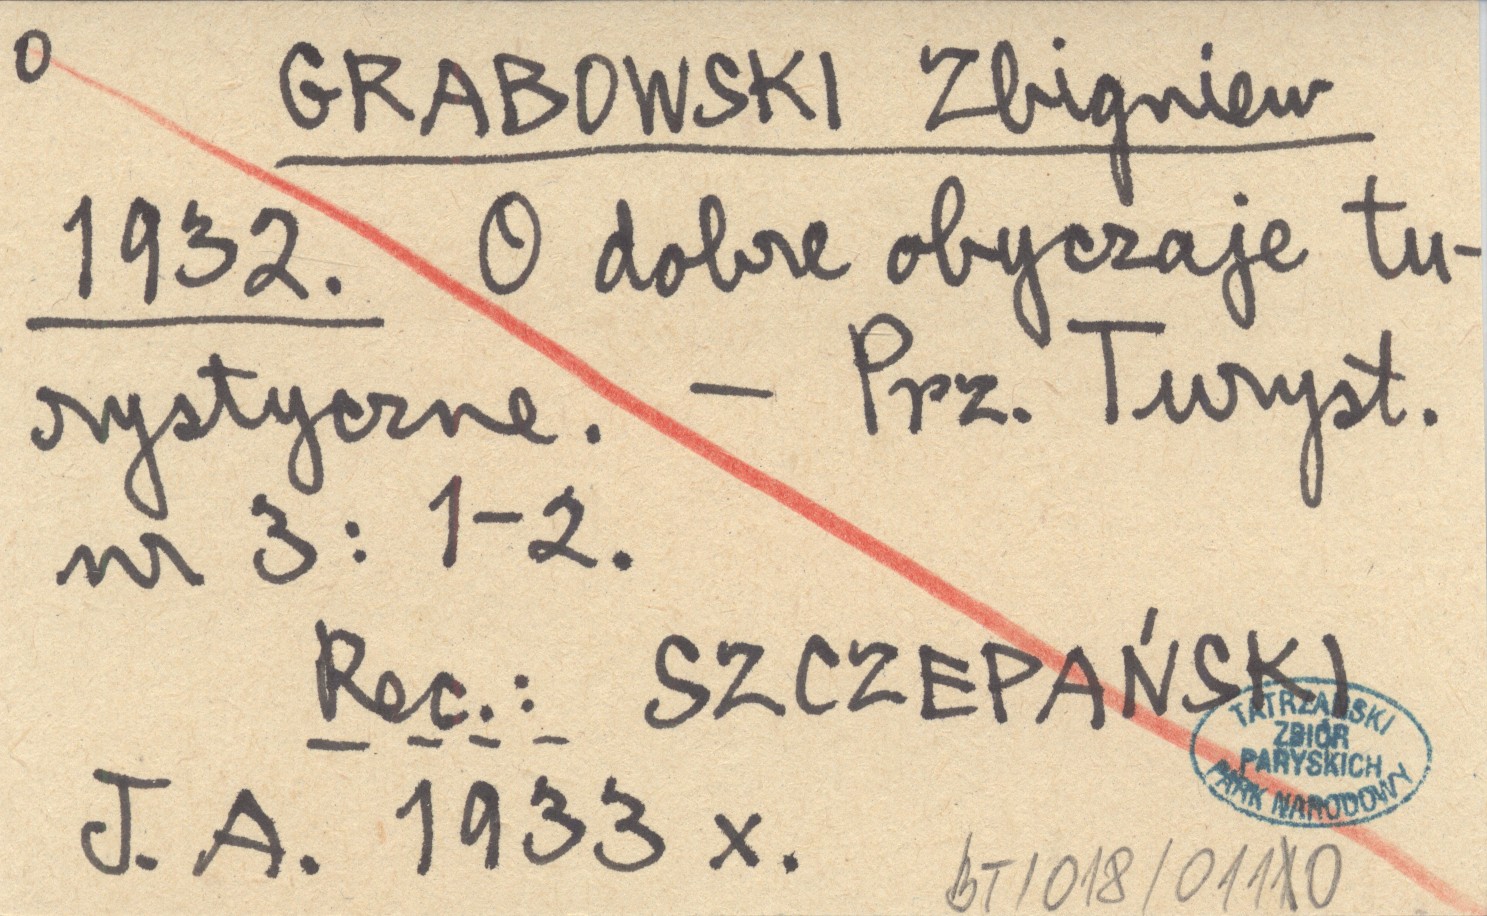 O
GRABOWSKI Zbigniew
1932. O dobre obyczaje tu-
rystyczne. — Prz. Turyst.
nr 3: 1-2.
Rec.: SZCZEPAŃSKI
J. A. 1933 x.
TATRZAŃSKI
ZBIÓR
PARYSKICH
PARK NARODOWY
BT/018/01110